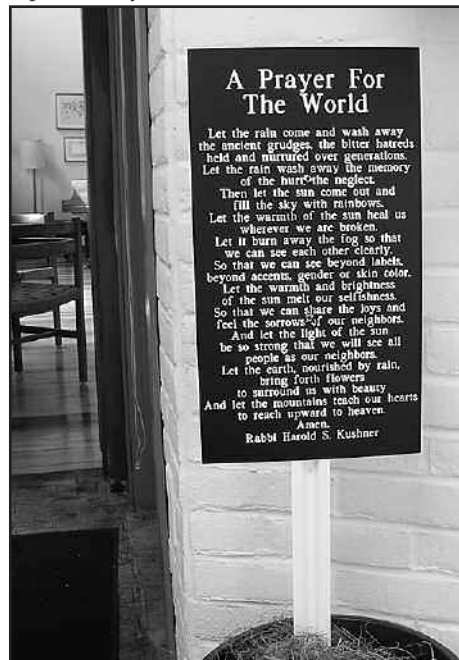 A Prayer For
The World
Let the rain come and wash away
the ancient grudges, the bitter hatreds
held and nurtured over generations.
Let the rain wash away the memory
of the hurt, the neglect.
Then let the sun come out and
fill the sky with rainbows.
Let the warmth of the sun heal us
wherever we are broken.
Let it burn away the fog so that
we can see each other clearly.
So that we can see beyond labels,
beyond accents, gender or skin color.
Let the warmth and brightness
of the sun melt our selfishness.
So that we can share the joys and
feel the sorrows of our neighbors.
And let the light of the sun
be so strong that we will see all
people as our neighbors.
Let the earth, nourished by rain,
bring forth flowers
to surround us with beauty
And let the mountains teach our hearts
to reach upward to heaven.
Amen.
Rabbi Harold S. Kushner